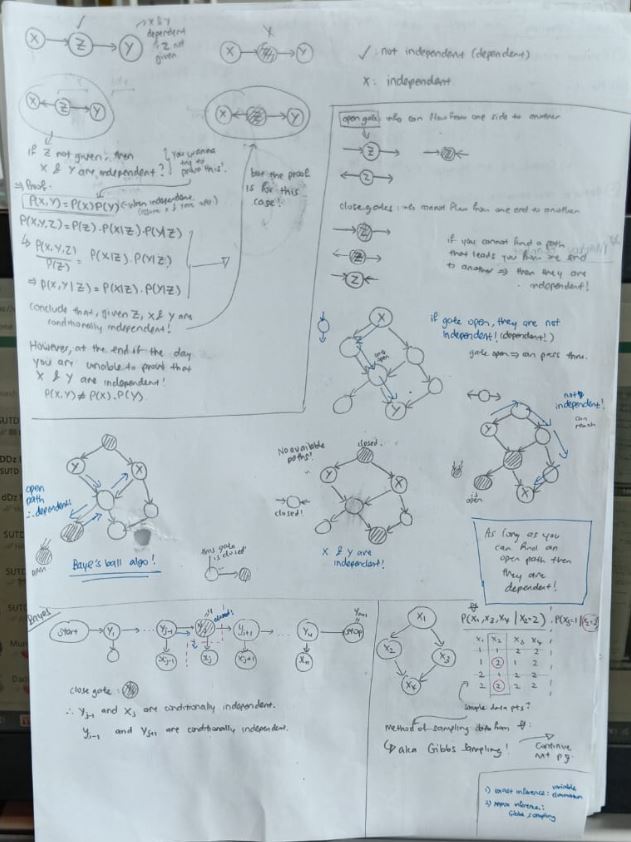 X → Z → Y
X & Y
dependent
Z not
given.
X → Z → Y
✓: not independent (dependent)
X: independent
X ← Z → Y
X ← Z → Y
if Z not given, then
X & Y are independent?
you wanna
try to
prove this!
but the proof
is for this
case!
⇒ Proof:
P(X,Y) = P(X)P(Y)
when independence
P(X,Y,Z) = P(Z) · P(X|Z) · P(Y|Z)
P(X,Y,Z)/P(Z) = P(X|Z) · P(Y|Z)
⇒ P(X,Y|Z) = P(X|Z) · P(Y|Z)
conclude that, given Z, X & Y are
conditionally independent!
However, at the end of the day
you are unable to prove that
X & Y are independent!
P(X,Y) ≠ P(X) · P(Y)
open gate can flow from one side to another
→ Z →
→ Z ←
← Z →
close gates: cannot flow from one end to another
→ Z →
← Z →
→ Z ←
if you cannot find a path
that leads you from one end
to another ⇒ then they are
independent!
X
Z
Y
if gate open, they are not
independent! (dependent!)
gate open ⇒ can pass thru.
Y
X
not
independent!
can
reach
open
Y
X
open
path
∴ dependent!
open
Baye's ball algo!
gate
is closed
No available
paths!
closed.
closed!
Y
X
X & Y are
independent!
As long as you
can find an
open path then
they are
dependent!
Bayes
start
Y1
Yj-1
Yj
closed!
Yj+1
Yn
Yn+1
stop
Xj-1
Xj
Xj+1
Xn
close gate:
∴ Yj-1 and Xj are conditionally independent.
Yj-1 and Yj+1 are conditionally independent.
X1
X2
X3
X4
P(X1,X3,X4 | X2=2)
X1 X2 X3 X4
1 1 2 2
1 2 1 2
2 1 2 2
2 2 2 2
sample data pts?
Method of sampling data from
↳ aka Gibbs Sampling!
Continue
next pg.
1) exact inference: variable
elimination
2) approx inference:
Gibbs sampling